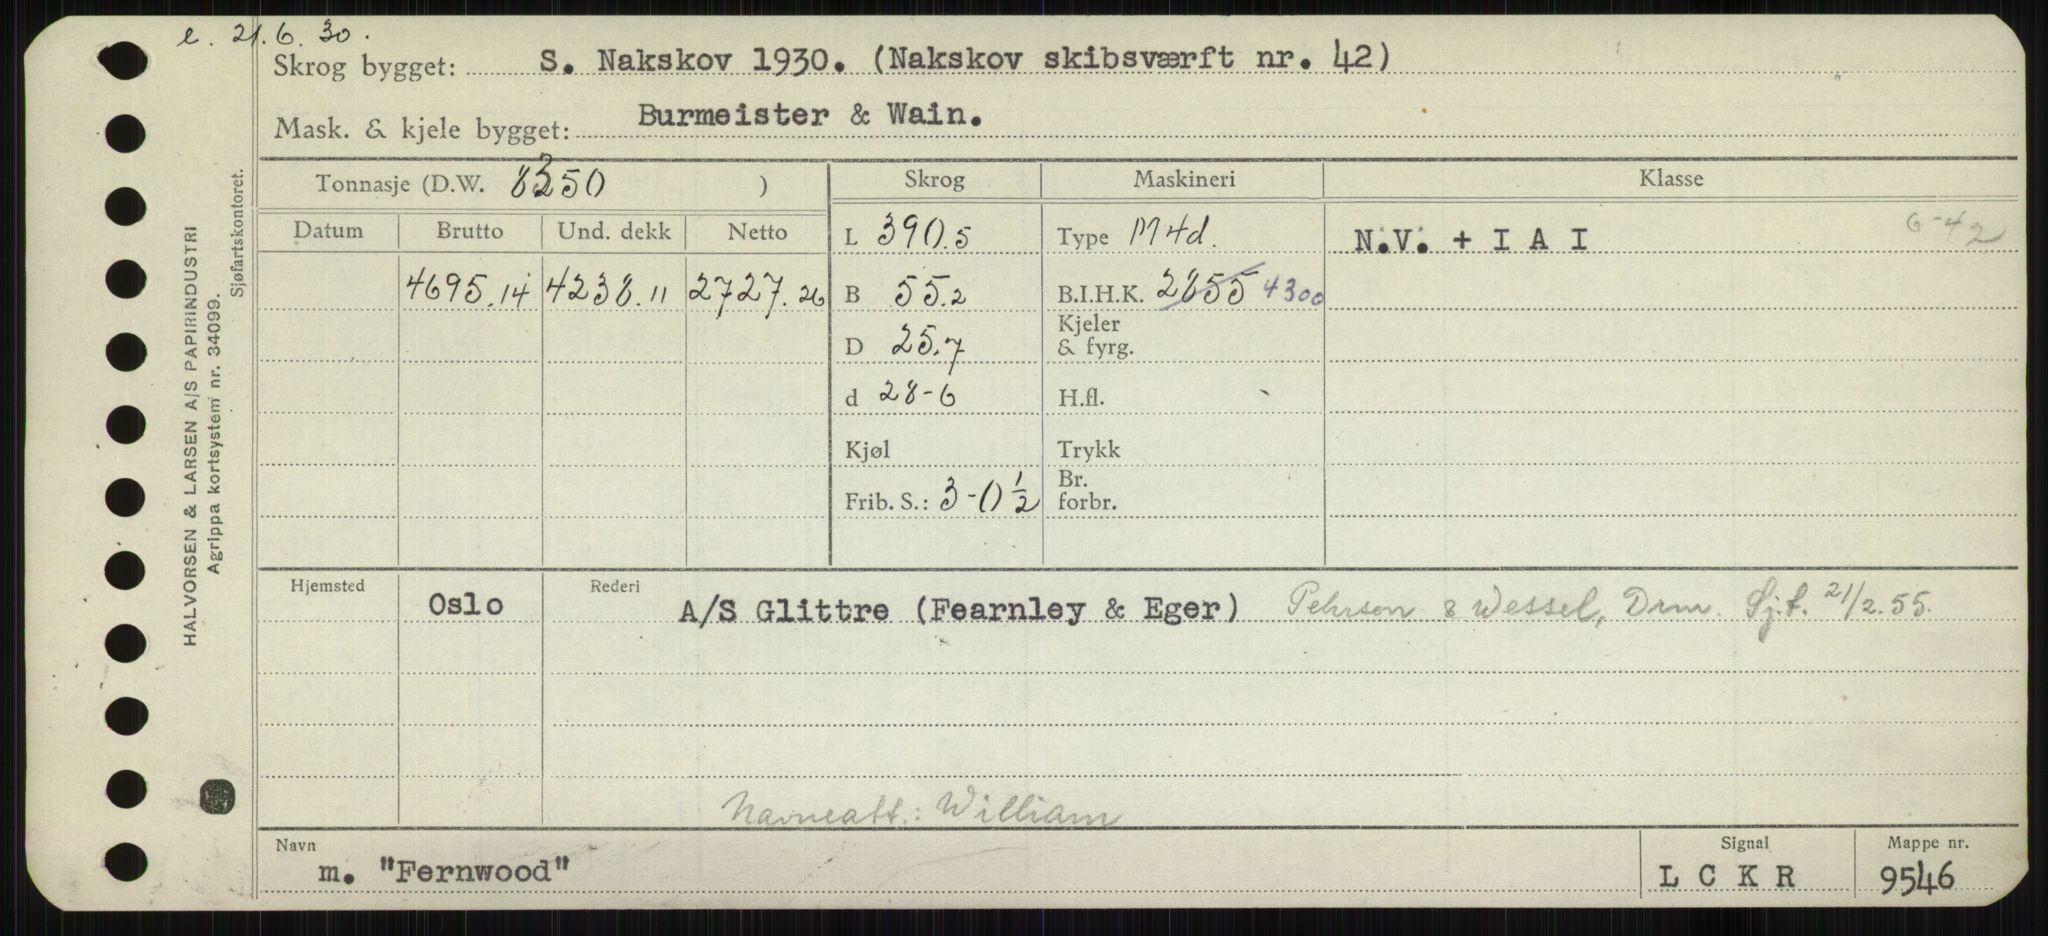 e. 21.6.30.
Skrog bygget: S. Nakskov 1930. (Nakskov skibsværft nr. 42)
Mask. & kjele bygget: Burmeister & Wain.
Tonnasje (D.W. 8350 ) Skrog Maskineri Klasse
Datum Brutto Und. dekk Netto L 390.5 Type M4d. N.V. + I A I 6-42
4695.14 4238.11 2727.26 B 55.2 B.I.H.K. 2855 4300
D 25.7 Kjeler & fyrg.
d 28-6 H.fl.
Kjøl Trykk
Frib. S.: 3-0 1/2 Br. forbr.
Hjemsted Oslo Rederi A/S Glittre (Fearnley & Eger) Pehrson & Wessel, Drm. Sj.f. 21/2.55.
Navneatt.: William
Navn Signal Mappe nr.
m. "Fernwood" L C K R 9546
HALVORSEN & LARSEN A/S PAPIRINDUSTRI
Agrippa kortsystem nr. 34099.
Sjøfartskontoret.